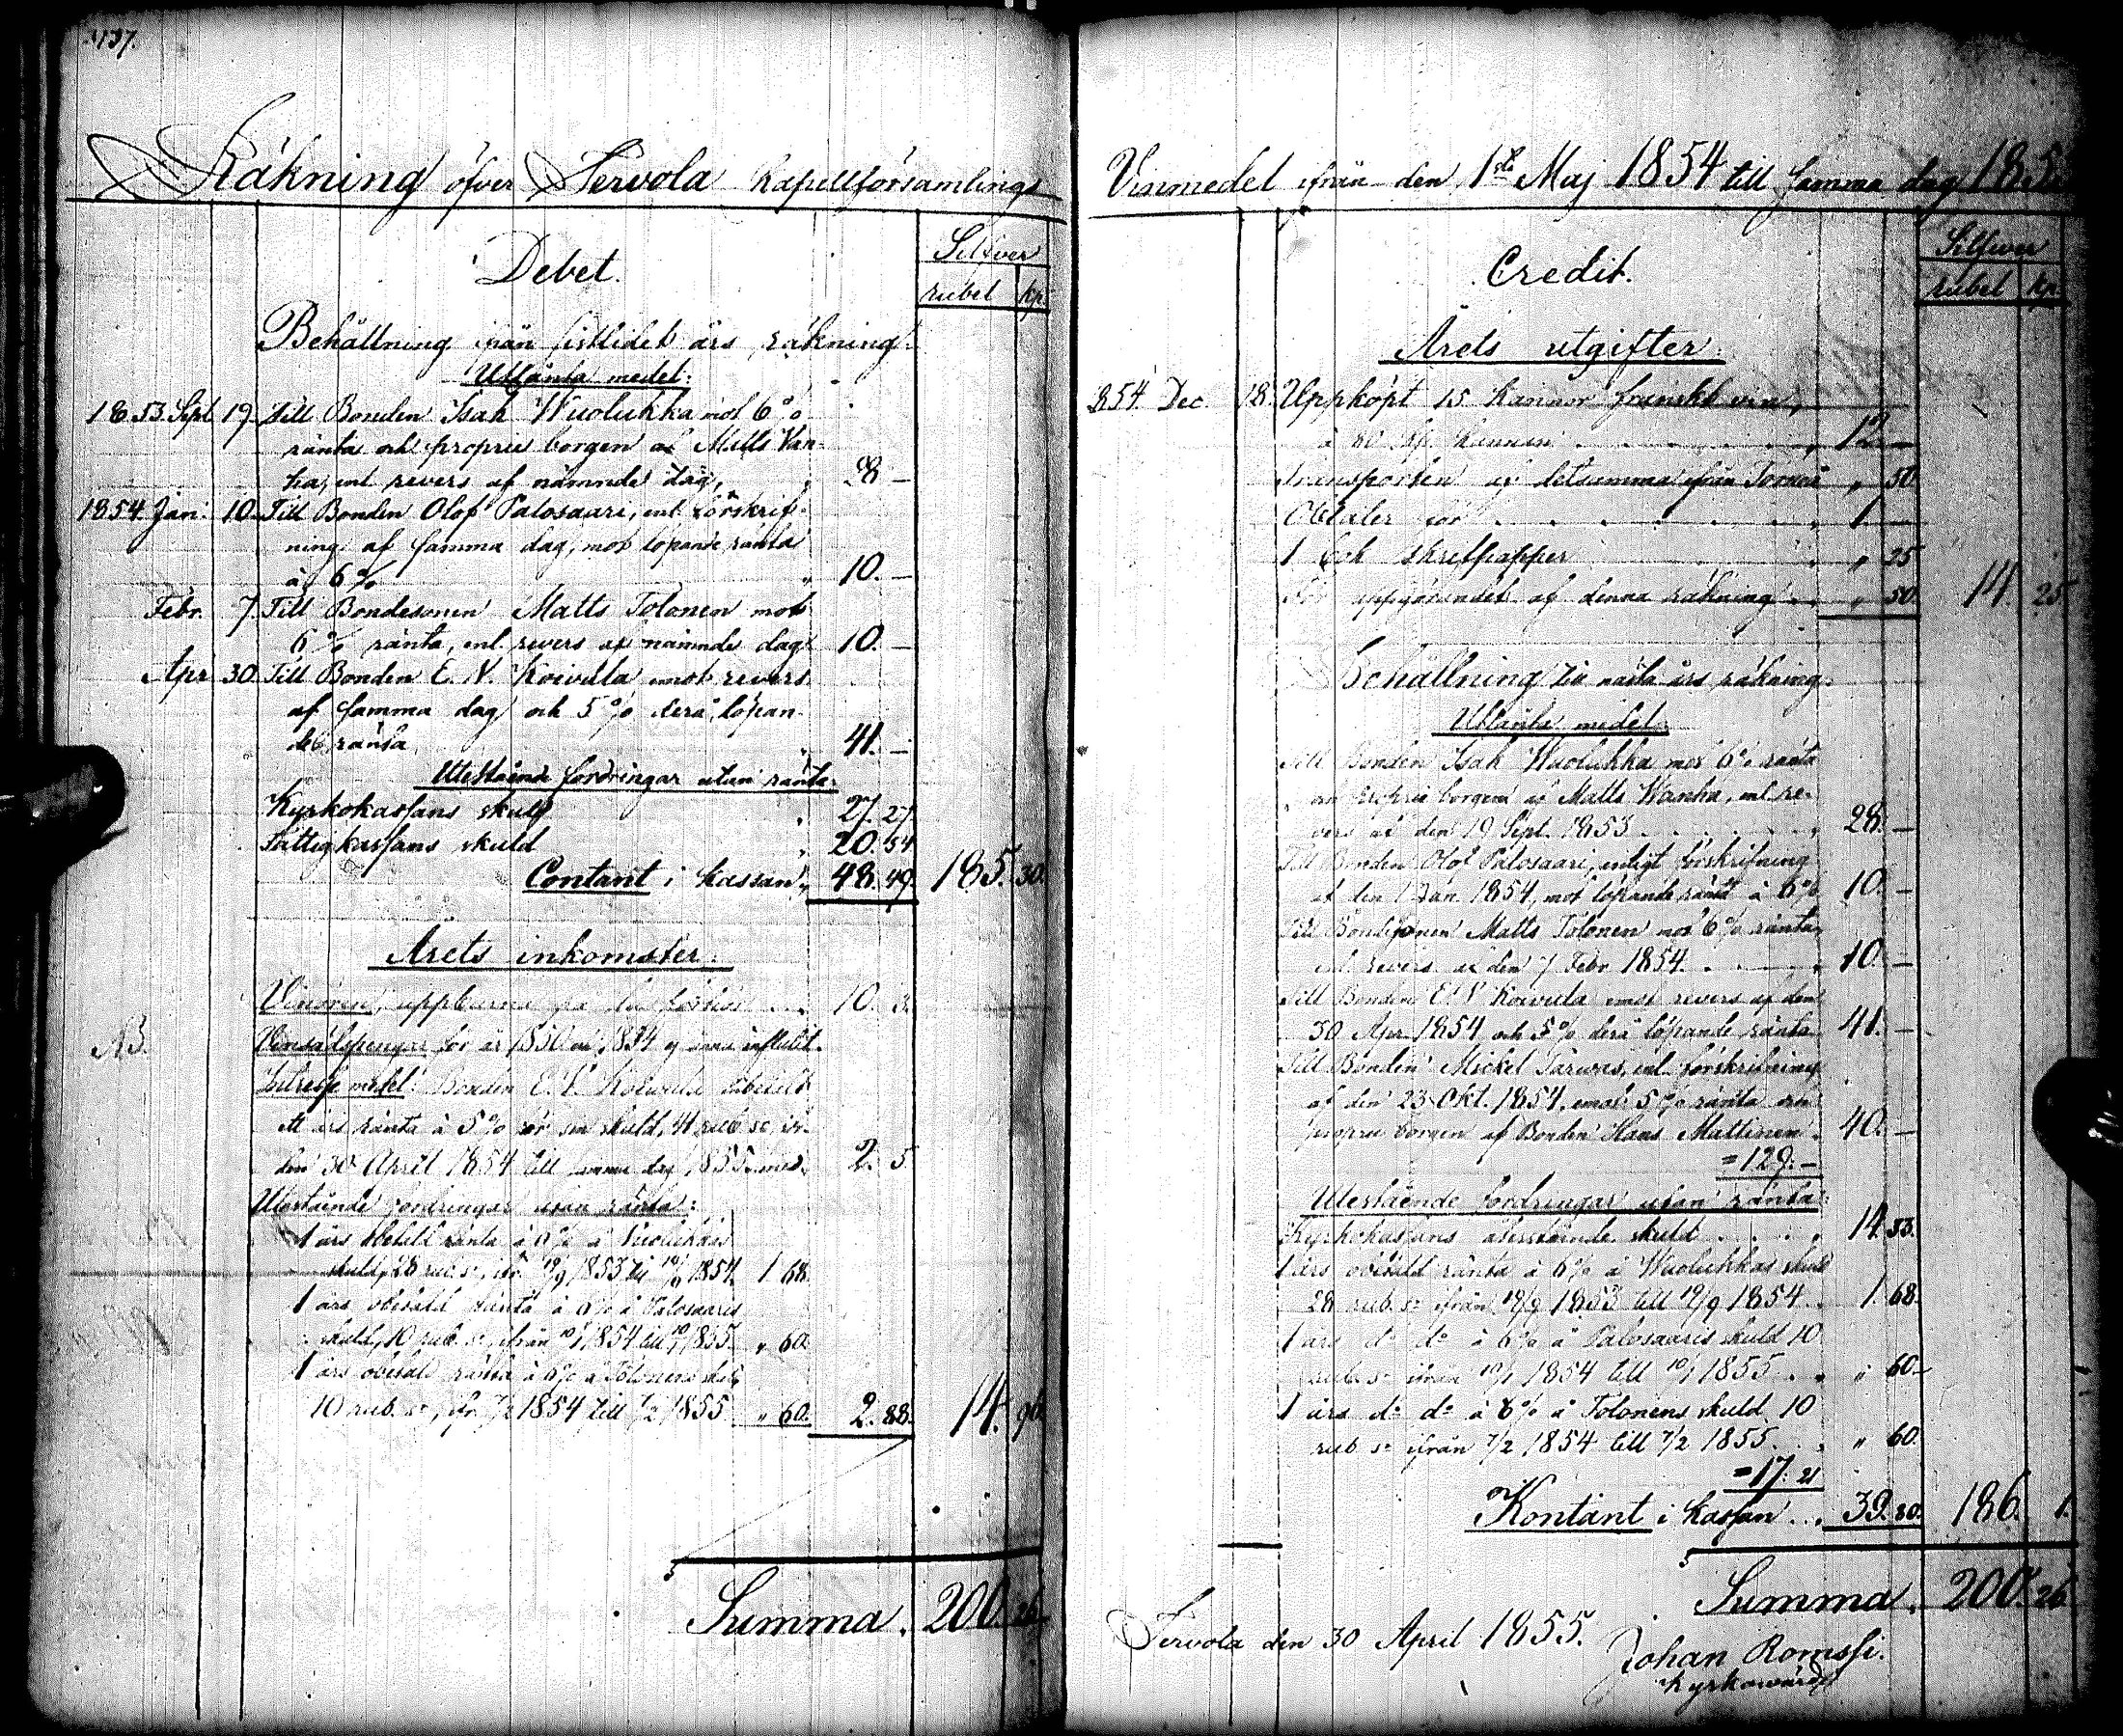 137.
Räkning öfver Tervola Kapellförsamlings
Debet.
Silfver
rubel kp.
Behållning ifrån sistlidet års räkning.
Utlånta medel:
1853 Sept 19. Till Bonden Isak Wuolukka mot 6%
ränta och proprie borgen af Matts Van-
ha, enl. revers af nämnde dag, 28 —
1854 Jan. 10. Till Bonden Olof Palosaari, enl. förskrif-
ning af samma dag, mot löpande ränta
à 6% 10. —
Febr. 7. Till Bondesonen Matts Tolonen mot
6% ränta, enl. revers af nämnde dag 10. —
Apr 30. Till Bonden E. N. Koivula emot revers
af samma dag och 5% derå löpan-
de ränta 41. —
Utestående fordringar utan ränta:
Kyrkokassans skuld 27. 27.
Fattigkassans skuld 20. 54
Contant i kassan 48. 49. 185. 30.
Årets inkomster:
Vinören, uppburna 10. 3.
NB. Vinsädspengar för år 1850 1854 ej influtit.
Intresse medel: Bonden E. N. Koivula
ett års ränta à 5% för sin skuld, 41 rub. sr, ifr.
den 30 April 1854 till samma dag 1855. med. 2. 5.
Utestående fordringar utan ränta:
1 års obetald ränta à 6% å Wuolukkas
skuld, 28 rub. sr, ifr. 19/9 1853 till 19/9 1854. 1 68.
1 års obetald ränta à 6% å Palosaaris
skuld, 10 rub. sr, ifrån 10/1 1854 till 10/1 1855. " 60.
1 års obetald ränta à 6% å Tolonens skuld
10 rub. sr, ifr. 7/2 1854 till 7/2 1855 " 60. 2. 88. 14. 96
Summa. 200. 26
Vinmedel ifrån den 1sta Maj 1854 till samma dag 1855
Credit.
Silfver
rubel kp.
Årets utgifter
1854 Dec. 18. Uppköpt 15 kannor franskt vin,
à 80 kp. kannan 12. —
Transporten af detsamma ifrån Torneå " 50
Oblater för 1. —
1 bok skrifpapper " 25
För uppgörandet af denna räkning " 50 14. 25
Behållning till nästa års räkning.
Utlånta medel:
Till Bonden Isak Wuolukka mot 6% ränta
och proprie borgen af Matts Wanha, enl. re-
vers af den 19 Sept. 1853 28. —
Till Bonden Olof Palosaari, enligt förskrifning
af den 1 Jan. 1854, mot löpande ränta à 6% 10. —
Till Bondesonen Matts Tolonen mot 6% ränta,
enl. revers af den 7 Febr. 1854. 10. —
Till Bonden E. N. Koivula emot revers af den
30 Apr. 1854 och 5% derå löpande ränta 41. —
Till Bonden Mickel enl. förskrifning
af den 23 Okt. 1854, emot 5% ränta och
proprie borgen af Bonden Hans Mattinen. 40. —
=129. —
Utestående fordringar utan ränta:
Kyrkokassans återstående skuld 14. 33.
1 års obetald ränta à 6% å Wuolukkas skuld
28 rub. sr ifrån 19/9 1853 till 19/9 1854. 1. 68.
1 års do do à 6% å Palosaaris skuld 10
rub. sr ifrån 10/1 1854 till 10/1 1855 " 60.
1 års do do à 6% å Tolonens skuld 10
rub sr ifrån 7/2 1854 till 7/2 1855. " 60.
=17. 21
Kontant i kassan 39. 80. 186. 1.
Summa. 200. 26
Tervola den 30 April 1855.
Johan Romssi.
Kyrkowärd